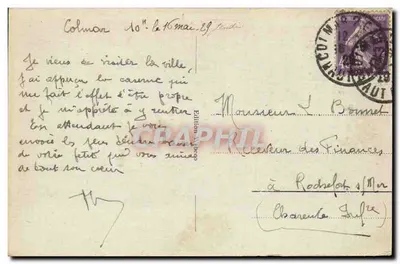 Colmar 10h le 16 mai 29
Je viens de visiter la ville,
j'ai aperçu la caserne qui
me fait l'effet d'être propre
et je m'apprête à y rentrer
En attendant je vous
envoie les plus
de votre petit qui vous aime
de tout son cœur
Monsieur L Bonnet
Receveur des Finances
à Rochefort s/Mer
(Charente Infre)
CPARAMA